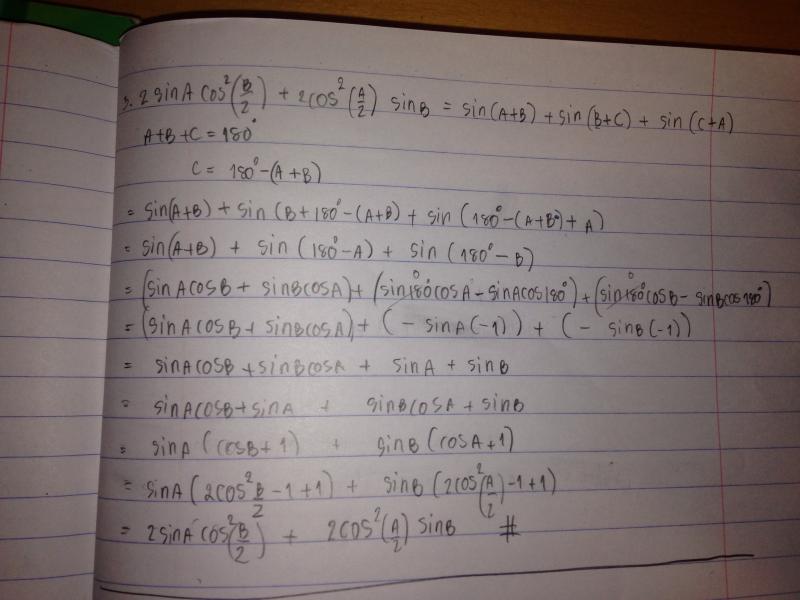 3. 2 sinA cos²(B/2) + 2cos²(A/2) sinB = sin(A+B) + sin(B+C) + sin(C+A)
A+B+C = 180°
C = 180° - (A+B)
= sin(A+B) + sin(B+180° - (A+B) + sin(180° - (A+B°) + A)
= sin(A+B) + sin(180° - A) + sin(180° - B)
= (sinAcosB + sinBcosA) + (sin180°cosA - sinAcos180°) + (sin180°cosB - sinBcos180°)
= (sinAcosB + sinBcosA) + (-sinA(-1)) + (-sinB(-1))
= sinAcosB + sinBcosA + sinA + sinB
= sinAcosB + sinA + sinBcosA + sinB
= sinA(cosB+1) + sinB(cosA+1)
= sinA(2cos²B/2 - 1+1) + sinB(2cos²(A/2) - 1+1)
= 2sinA cos²(B/2) + 2cos²(A/2) sinB #